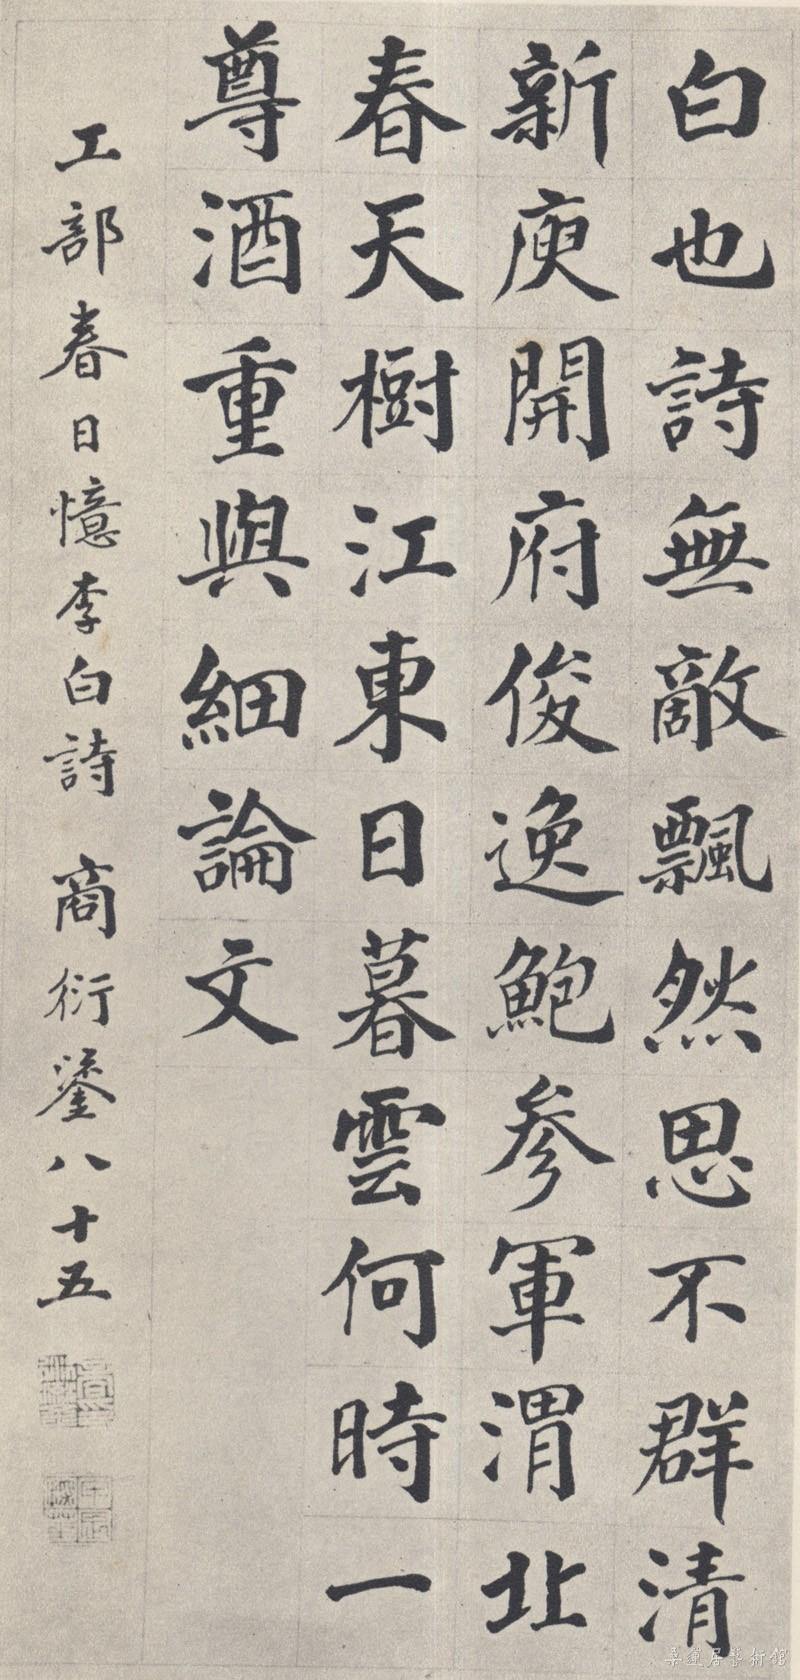 白也詩無敵飄然思不群清
新庾開府俊逸鮑參軍渭北
春天樹江東日暮雲何時一
尊酒重與細論文
工部春日憶李白詩 商衍鎏八十五
桑蓮居藝術館